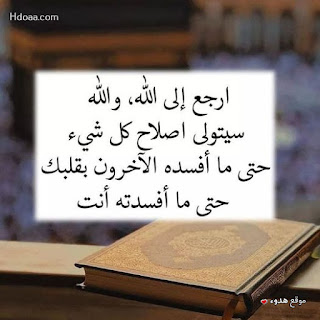 Hdoaa.com
ارجع إلى الله، والله
سيتولى اصلاح كل شيء
حتى ما أفسده الآخرون بقلبك
حتى ما أفسدته أنت
موقع هدوء